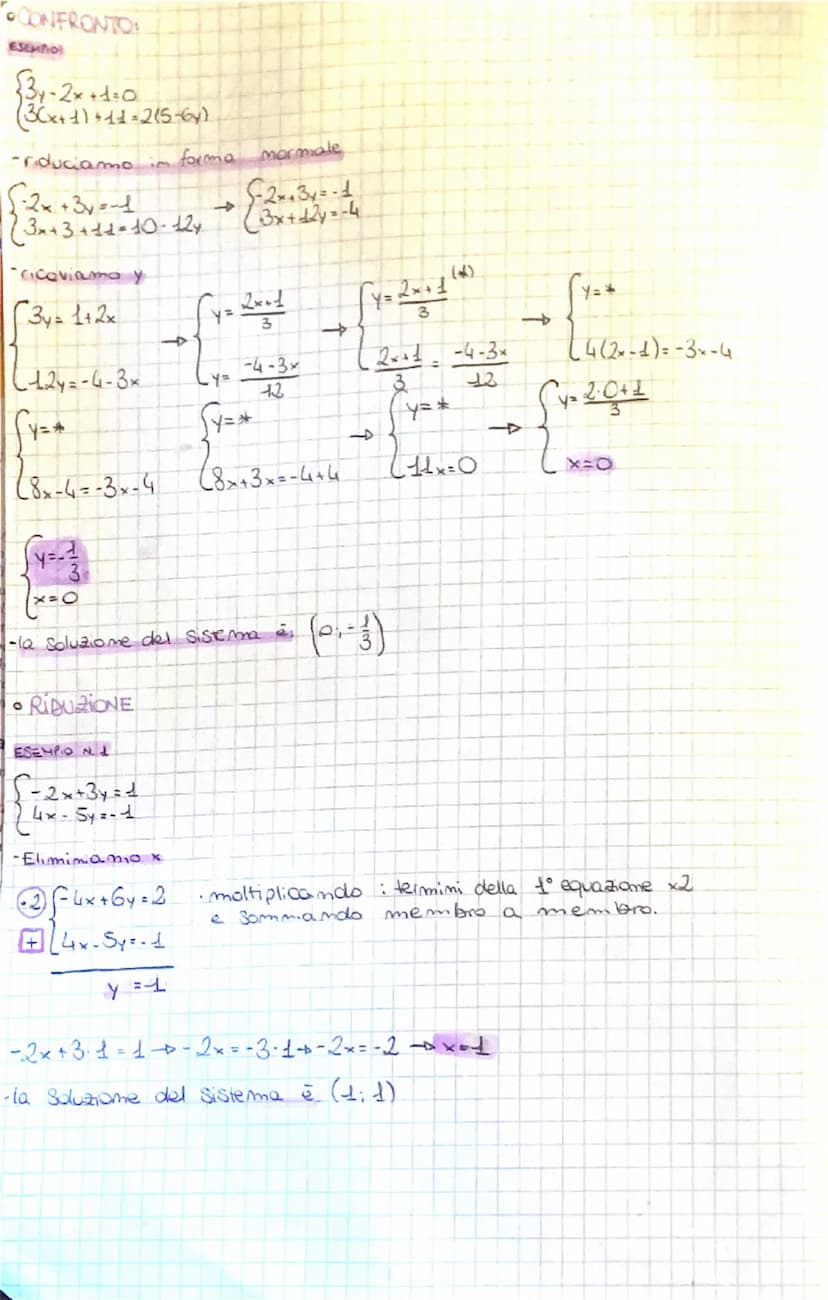 • CONFRONTO:
ESEMPIO:
{3y-2x+1=0
{3(x+1)+11=2(5-6y)
-riduciamo in forma normale
{-2x+3y=-1 → {-2x+3y=-1
{3x+3+11=10-12y {3x+12y=-4
-ricaviamo y
{3y=1+2x → {y=(2x+1)/3 → {y=(2x+1)/3 (*) → {y=*
{12y=-4-3x {y=(-4-3x)/12 {(2x+1)/3=(-4-3x)/12 {4(2x-1)=-3x-4
{y=* {y=* → {y=* → {y=(2·0+1)/3
{8x-4=-3x-4 {8x+3x=-4+4 {11x=0 {x=0
{y=-1/3
{x=0
-la soluzione del sistema è: (0;-1/3)
• RIDUZIONE
ESEMPIO N.1
{-2x+3y=1
{4x-5y=-1
-Eliminiamo x
·2 {-4x+6y=2 · moltiplicando i termini della 1° equazione x2
+ {4x-5y=-1 e sommando membro a membro.
y=1
-2x+3·1=1→-2x=-3·1→-2x=-2→x=1
-la soluzione del sistema è (1;1)